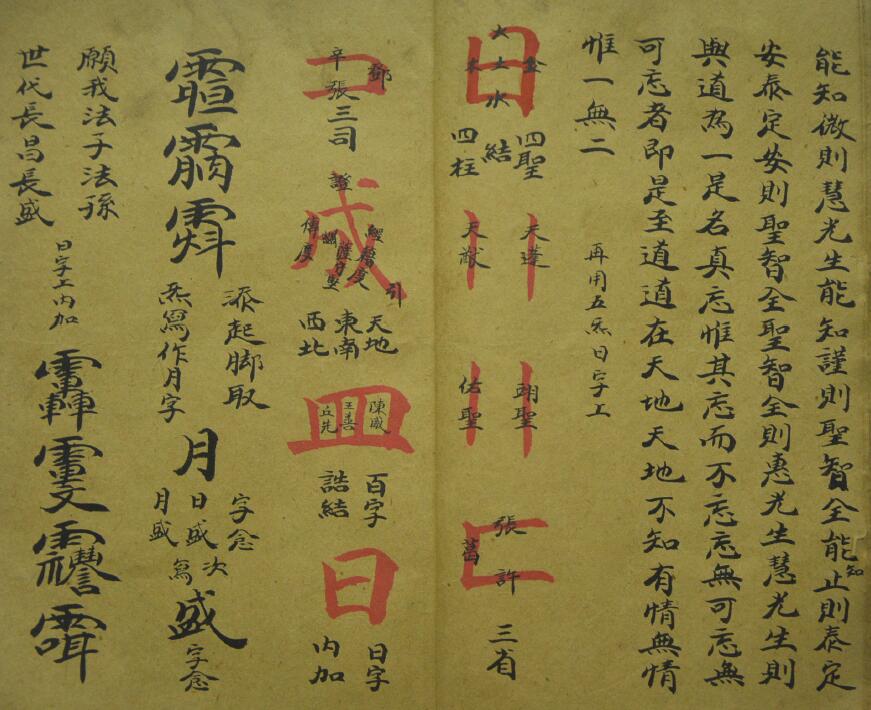 能知微則慧光生能知謹則聖智全能知止則泰定
安泰定安則聖智全聖智全則惠光生慧光生則
與道為一是名真忘惟其忘而不忘忘無可忘無
可忘者即是至道道在天地天地不知有情無情
惟一無二
再用五炁日字工
日
火
木土金
水
四聖
結
四柱
天蓬
天猷
翊聖
佑聖
張許
葛
三省
鄧
辛張三司
證
成
引
天地
東南
西北
皿
陳威
王善
丘先
百字
誥結
日
日字
內加
添起腳取
炁寫作月字
月
字念
日盛次
月盛寫
盛
字念
願我法子法孫
世代長昌長盛
日字工內加